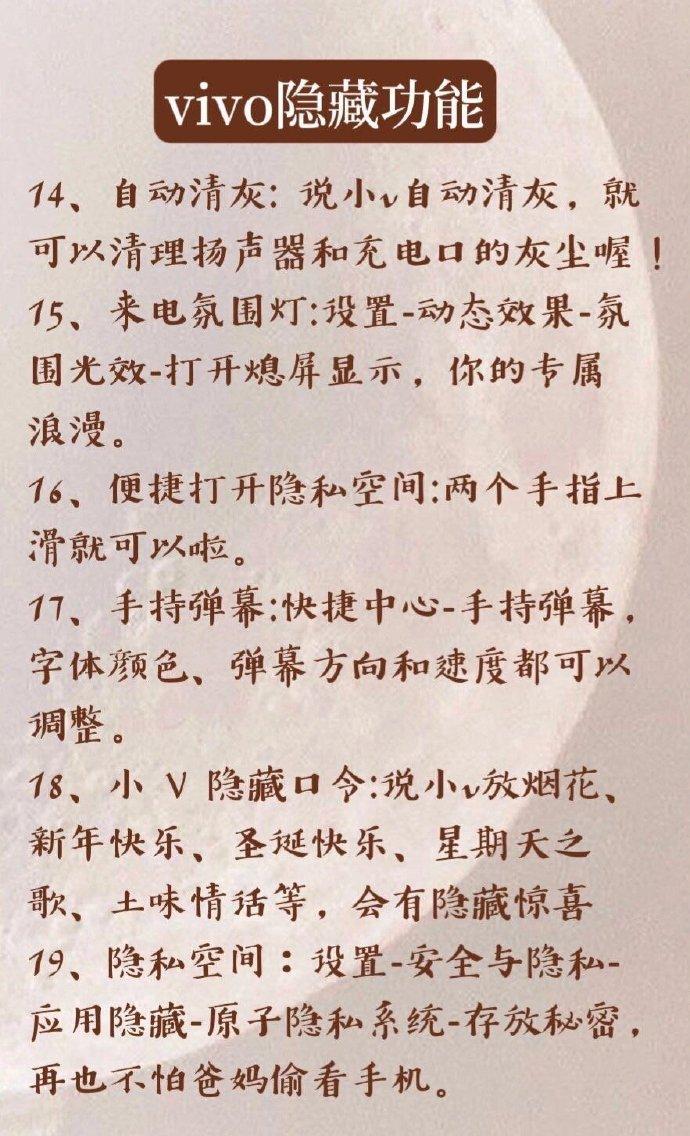 vivo隐藏功能
14、自动清灰: 说小v自动清灰，就
可以清理扬声器和充电口的灰尘喔！
15、来电氛围灯:设置-动态效果-氛
围光效-打开熄屏显示，你的专属
浪漫。
16、便捷打开隐私空间:两个手指上
滑就可以啦。
17、手持弹幕:快捷中心-手持弹幕，
字体颜色、弹幕方向和速度都可以
调整。
18、小 V 隐藏口令:说小v放烟花、
新年快乐、圣诞快乐、星期天之
歌、土味情话等，会有隐藏惊喜
19、隐私空间：设置-安全与隐私-
应用隐藏-原子隐私系统-存放秘密，
再也不怕爸妈偷看手机。